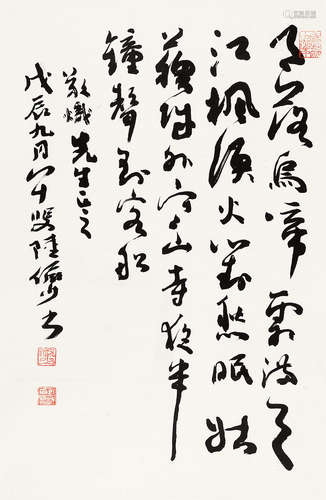 月落烏啼霜滿天
江楓漁火對愁眠姑
蘇城外寒山寺夜半
鐘聲到客船
先生正之
戊辰九月八十叟陸儼少